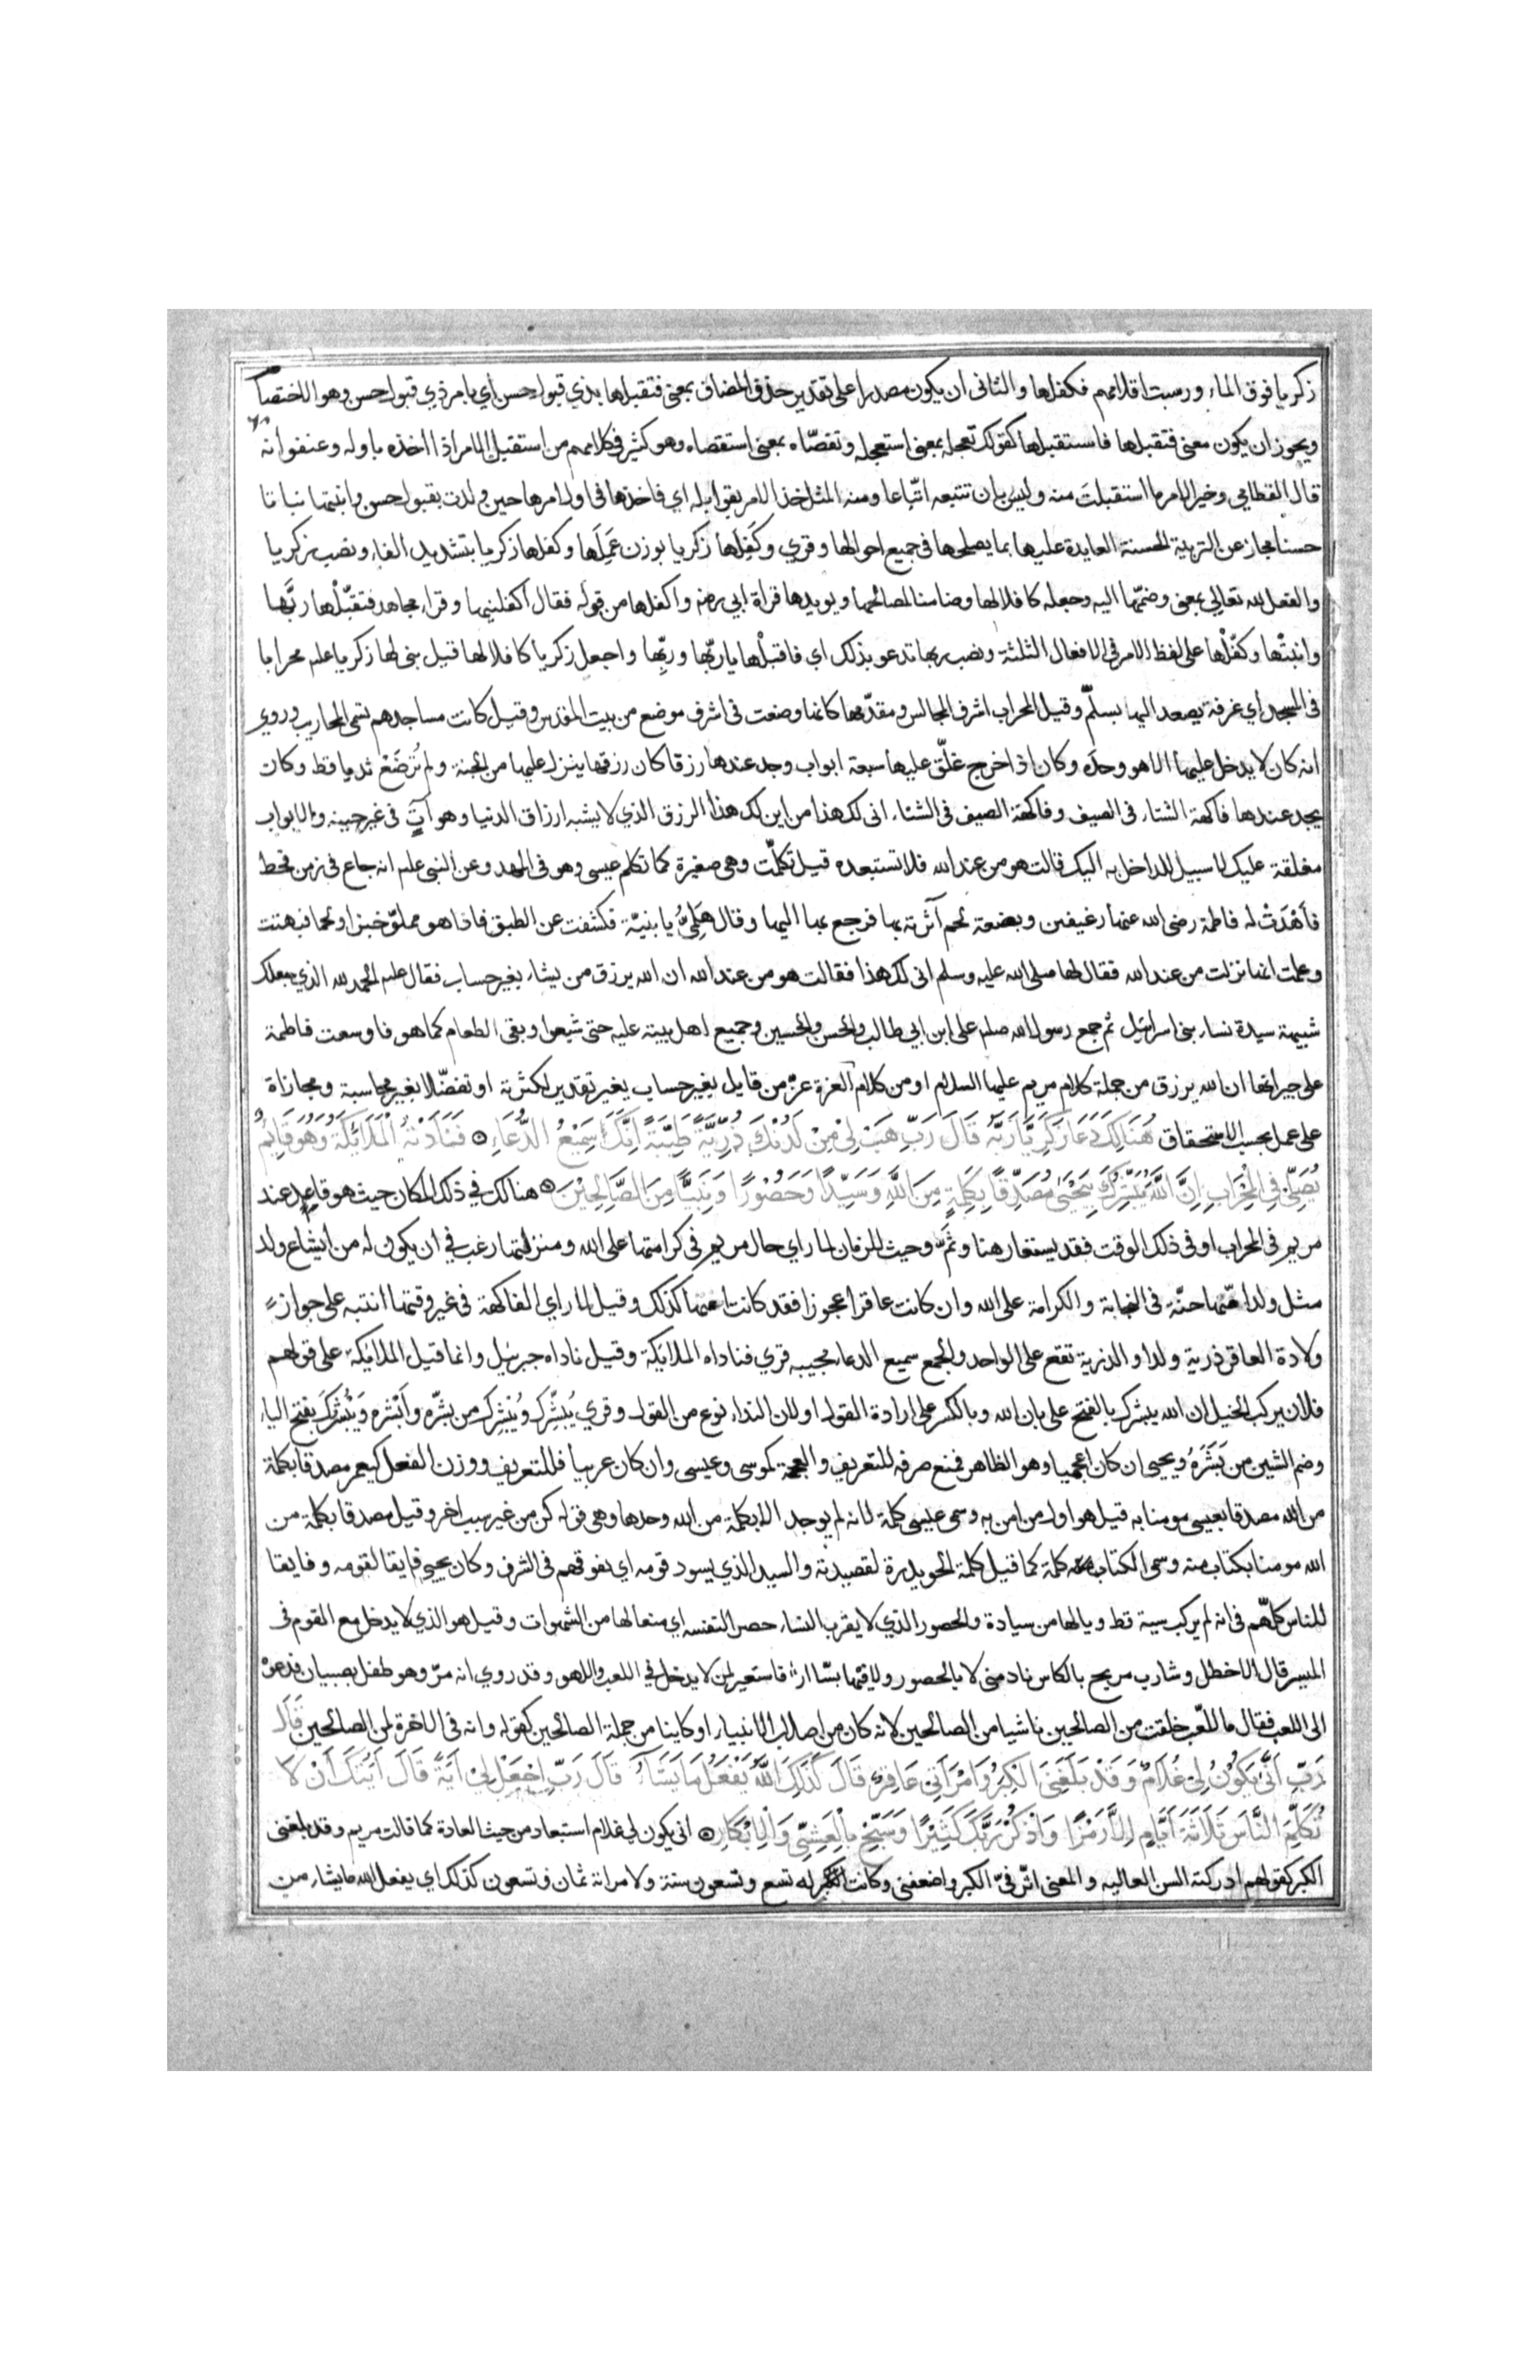 زكريا فوق الماء ورسبت اقلامهم فكفلها والثانى ان يكون مصدرا على تقدير حذف المضاف بمعنى فتقبلها بذي قبول حسن أي بامر ذي قبول حسن وهو الاختصاص
ويجوز ان يكون معنى فتقبلها فاستقبلها كقولك تعجله بمعنى استعجله وتقصّاه بمعنى استقصاه وهو كثير فى كلامهم من استقبل الامر اذا أخذه باوله وعنفوانه
قال القطامي وخير الامر ما استقبلتَ منه وليس بان تتبعه اتّباعا ومنه المثل خذ الامر بقوابله اي فاخذها فى اول امرها حين ولدت بقبول حسن وانبتها نباتا
حسنا مجاز عن التربية الحسنة العايدة عليها بما يصلحها فى جميع احوالها وقري وكَفِلَها زكريا بوزن عَمِلَها وكفلها زكريا بتشديد الفاء ونصب زكريا
والفعل لله تعالى بمعنى وضمّها اليه وجعله كافلا لها وضامنا لمصالحها ويويدها قراة ابي رضه واكفلها من قوله فقال اكفلنيها وقراء مجاهد فتقبّلْها ربَّها
وانبتْها وكفّلْها على لفظ الامر فى الافعال الثلثة ونصب ربها تدعو بذلك اي فاقبلْها يا ربّها وربِّها واجعل زكريا كافلا لها قيل بنى لها زكريا علم محرابا
فى المسجد أي غرفة يصعد اليها بسلّم وقيل المحراب اشرف المجالس ومقدّمها كانما وضعت فى اشرف موضع من بيت المقدس وقيل كانت مساجدهم تسمى المحاريب وروي
انه كان لا يدخل عليها الا هو وحده وكان اذا خرج غلّق عليها سبعة ابواب وجد عندها رزقا كان رزقها ينزل عليها من الجنة ولم تُرضَعْ ثديا قط وكان
يجد عندها فاكهة الشتاء فى الصيف وفاكهة الصيف فى الشتاء انى لك هذا من اين لك هذا الرزق الذي لا يشبه ارزاق الدنيا وهو آتٍ فى غير حينه والابواب
مغلقة عليك لا سبيل للداخل به اليك قالت هو من عند الله فلا تستبعده قيل تكلّمت وهى صغيرة كما تكلم عيسى وهو فى المهد وعن النبى علم انه جاع فى زمن قحط
فأهْدَتْ له فاطمة رضى الله عنها رغيفين وبضعة لحم آثرته بها فرجع بها اليها وقال هَلُمِّي يا بنيّة فكشفت عن الطبق فاذا هو مملوّ خبزا ولحما فبهتت
وعلمت انها نزلت من عند الله فقال لها صلى الله عليه وسلم انى لك هذا فقالت هو من عند الله ان الله يرزق من يشاء بغير حساب فقال علم الحمد لله الذي جعلك
شبيهة سيدة نساء بنى اسرائيل ثم جمع رسول الله صلم على ابن ابي طالب والحسن والحسين وجميع اهل بيته عليه حتى شبعوا وبقى الطعام كما هو فاوسعت فاطمة
على جيرانها ان الله يرزق من جملة كلام مريم عليها السلام او من كلام العزة عزّ من قايل بغير حساب بغير تقدير لكثرته او تفضّلا بغير محاسبة ومجازاة
على عمل بحسب الاستحقاق هُنَالِكَ دَعَا زَكَرِيَّا رَبَّهُ قَالَ رَبِّ هَبْ لِىْ مِنْ لَدُنْكَ ذُرِّيَّةً طَيِّبَةً اِنَّكَ سَمِيْعُ الدُّعَاءِ فَنَادَتْهُ الْمَلَائِكَةُ وَهُوَ قَائِمٌ
يُصَلِّىْ فِى الْمِحْرَابِ اِنَّ اللَّهَ يُبَشِّرُكَ بِيَحْيَىٰ مُصَدِّقًا بِكَلِمَةٍ مِنَ اللَّهِ وَسَيِّدًا وَحَصُوْرًا وَنَبِيًّا مِنَ الصَّالِحِيْنَ هنالك فى ذلك المكان حيث هو قاعد عند
مريم فى المحراب او فى ذلك الوقت فقد يستعار هنا وثَمَّ وحيث للزمان لما راي حال مريم فى كرامتها على الله ومنزلتها رغب في ان يكون له من ايشاع ولد
مثل ولد اختها حنّة فى النجابة والكرامة على الله وان كانت عاقرا عجوزا فقد كانت اختها كذلك وقيل لما راي الفاكهة فى غير وقتها انتبه على جواز
ولادة العاقر ذرية ولدا والذرية تقع على الواحد والجمع سميع الدعاء مجيبه قري فناداه الملائكة وقيل ناداه جبرئيل وانما قيل الملائكة على قولهم
فلان يركب الخيل ان الله يبشرك بالفتح على بان الله وبالكسر على ارادة القول او لان النداء نوع من القول وقري يُبَشِّرك ويُبْشِرك من بشّره وأَبْشره ويَبْشُرُك بفتح الياء
وضم الشين من بَشَرَهُ ويحيى ان كان اعجميا وهو الظاهر فمنع صرفه للتعريف والعجمة كموسى وعيسى وان كان عربيا فللتعريف ووزن الفعل كيعمر مصدقا بكلمة
من الله مصدقا بعيسى مومنا به قيل هو اول من امن به وسمى عيسى كلمة لانه لم يوجد الا بكلمة من الله وحدها وهى قوله كن من غير سبب اخر وقيل مصدقا بكلمة من
الله مومنا بكتاب منه وسمى الكتاب كلمة كما قيل كلمة الحويدرة لقصيدته والسيد الذي يسود قومه اي يفوقهم فى الشرف وكان يحيى فايقا لقومه وفايقا
للناس كلّهم فى انه لم يركب سية قط ويا لها من سيادة والحصور الذي لا يقرب النساء حصر النفسه اي منعا لها من الشهوات وقيل هو الذي لا يدخل مع القوم فى
الميسر قال الاخطل وشارب مربح بالكاس نادمنى لا بالحصور ولا فيها بسّاار فاستعير لمن لا يدخل في اللعب واللهو وقد روي انه مرّ وهو طفل بصبيان فدعوْه
الى اللعب فقال ما للّعب خلقت من الصالحين ناشيا من الصالحين لانه كان من اصلاب الانبياء او كاينا من جملة الصالحين كقوله وانه فى الاخرة لمن الصالحين قَالَ
رَبِّ اَنّٰى يَكُوْنُ لِىْ غُلَامٌ وَقَدْ بَلَغَنِىَ الْكِبَرُ وَامْرَأَتِىْ عَاقِرٌ قَالَ كَذَلِكَ اللَّهُ يَفْعَلُ مَا يَشَاءُ قَالَ رَبِّ اجْعَلْ لِىْ آيَةً قَالَ آيَتُكَ أَنْ لَا
تُكَلِّمَ النَّاسَ ثَلَاثَةَ اَيَّامٍ اِلَّا رَمْزًا وَاذْكُرْ رَبَّكَ كَثِيْرًا وَسَبِّحْ بِالْعَشِىِّ وَالْاِبْكَارِ انى يكون لى غلام استبعاد من حيث العادة كما قالت مريم وقد بلغنى
الكبر كقولهم ادركته السن العاليه والمعنى اثّر فىّ الكبر واضعفنى وكانت له تسع وتسعون سنة ولامراته ثمان وتسعون كذلك اي يفعل الله ما يشاء من